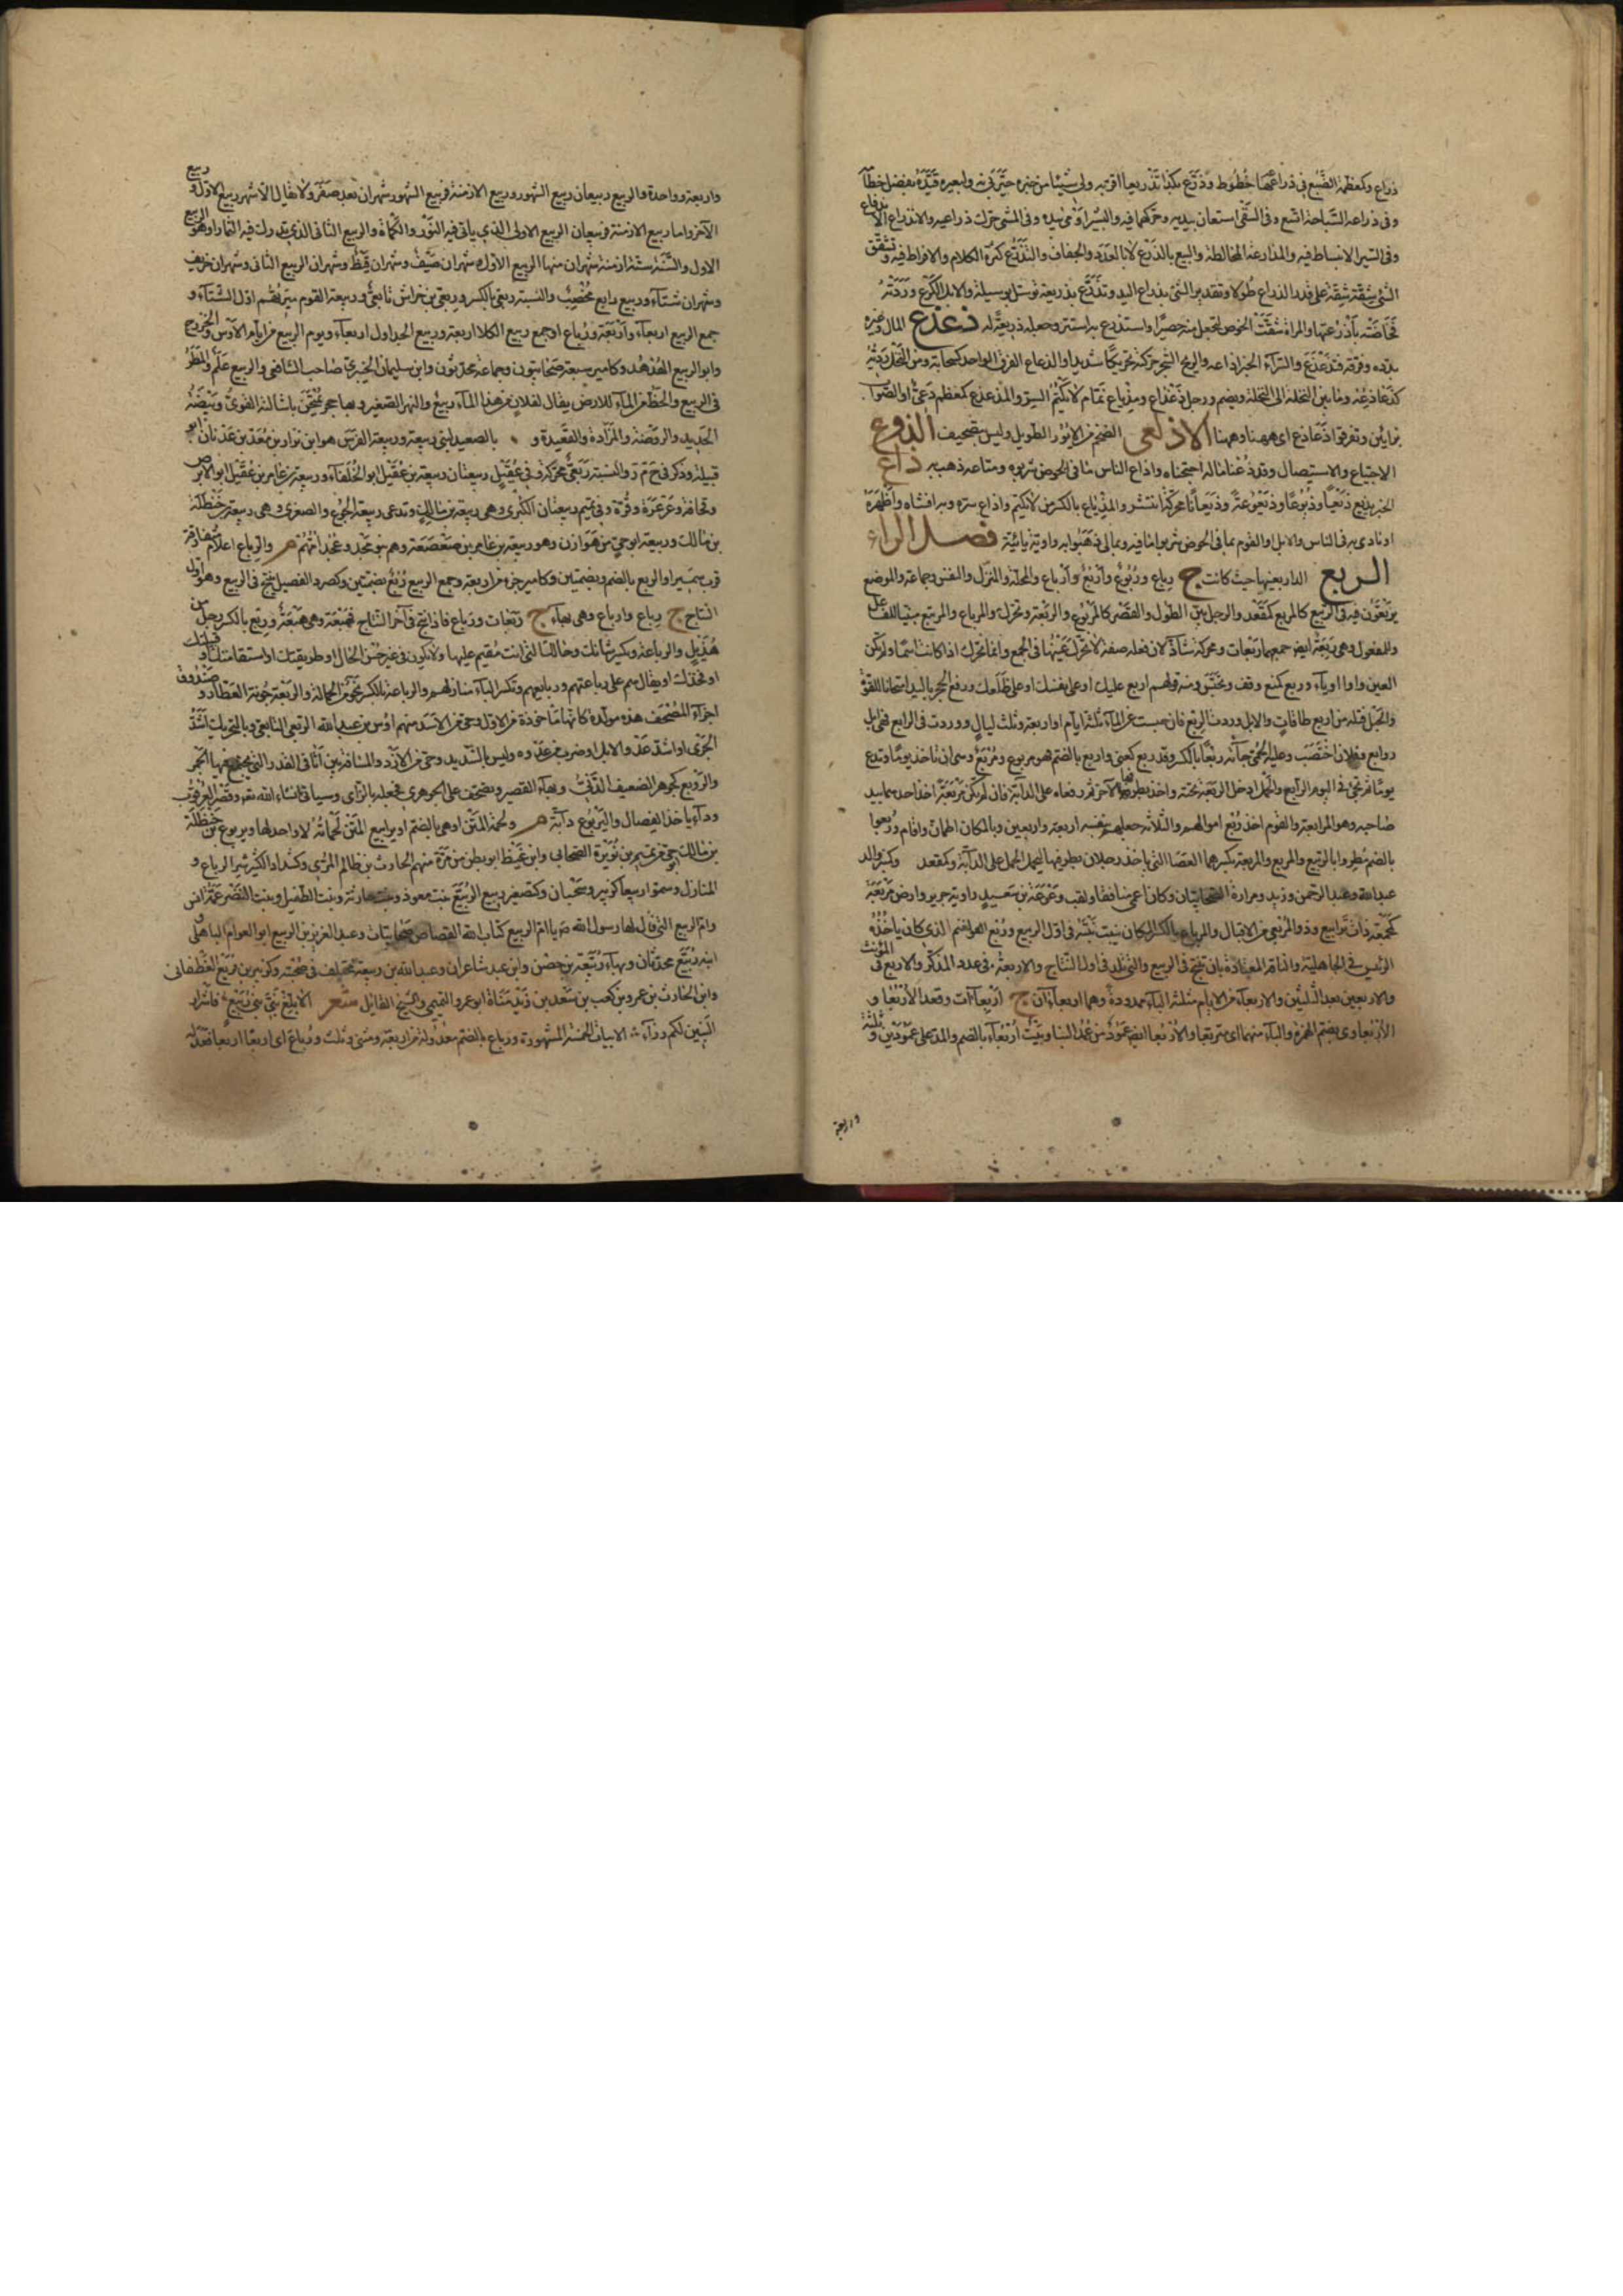 ذراع وكعظمة الضبع في ذراعها خطوط وذرع بكذا تذريعا اقر به ولي شيئا من خبره خبرني به ولبعيره قيده بفضل خطا
وفي ذراعه السباحة اتسع وفي السقي استعان بيديه وحركهما فيه والبشير اومى بيده وفي المشي حرك ذراعيه والانذراع الاندفاع
وفي السير الانبساط فيه والمذارعة المخالطة والبيع بالذرع لا بالعدد والجفاف والتذرع كثرة الكلام والافراط فيه وتشقق
الشئ شقة شقة على قدر الذراع طولا وتقدير الشئ بذراع اليد وتذرع بذريعة توسل بوسيلة والابل الكرع وردته
فخاضته باذرعها والمراة شققت الخوص لتجعل منه حصيرا واستذرع به استتر وجعله ذريعة له ذعذع المال وغيره
بدده وفرقه فتذعذع والسر او الخبر اذاعه والريح الشجر حركته تحريكا شديدا والذعاع الفرق الواحد كسحابة ومن النخل رديه
كذعاذعه وما بين النخلة الى النخلة ويضم ورجل ذعذاع ومذياع نمام لا يكتم السر والمذعذع كمعظم دعي او الصواب
بزايين وتفرقوا ذعاذع اي ههنا وههنا الاذلعي الضخم من الايور الطويل وليس بتصحيف الذوع
الاجتياح والاستيصال وقد ذعنا ماله اجتحناه واذاع الناس ما في الحوض شربوه ومتاعه ذهب به ذاع
الخبر يذيع ذيعا وذيوعا وذيعوعة وذيعانا محركة انتشر والمذياع بالكسر من لا يكتم واذاع سره وبه افشاه واظهره
او نادى به في الناس والابل والقوم بما في الحوض شربوا ما فيه وبمالي ذهبوا به واوية يائية فصل الراء
الربع الدار بعينها حيث كانت ج رباع وربوع واربع وارباع والمحلة والمنزل والنعش وجماعة والموضع
يرتعون فيه في الربيع كالمربع كمقعد والرجل بين الطول والقصر كالمربوع والربعة وتحرك والمرباع والمرتبع مبنيا للفاعل
وللمفعول وهي ربعة ايض جمعهما ربعات ومحركة شاذ لان فعلة صفة لا تحرك عينها في الجمع وانما تحرك اذا كانت اسما ولم تكن
العين واوا او ياء وربع كمنع وقف وتحبس ومنه قولهم اربع عليك او على نفسك او على ظلعك ورفع الحجر باليد امتحانا للقوة
والحبل فتله من اربع طاقات والابل وردت الربع فان حبست عن الماء ثلثة ايام او اربعة وثلث ليال ووردت في الرابع فهي ابل
روابع وفلان اخصب وعليه الحمى جاءته ربعا بالكسر وقد ربع كعني واربع بالضم فهو مربوع ومربع وهي ان تاخذ يوما وتدع
يومين ثم تجئ في اليوم الرابع والحمل ادخل الربعة تحته واخذ بطرفها والاخر ثم رفعاه على الدابة فان لم تكن مربعة اخذ احدهما بيد
صاحبه وهو المرابعة والقوم اخذ ربع اموالهم والثلاثة جعلهم بنفسه اربعة واربعين وبالمكان اطمان واقام وربعوا
بالضم مطروا بالربيع والمربع والمربعة بكسرهما العصا التي ياخذ رجلان بطرفيها ليحملا الحمل على الدابة وكمقعد وكمنبر والد
عبد الله وعبد الرحمن وزيد ومرارة الصحابيان وكان اعمى منافقا ولقب وعوعة بن سعيد راوية جرير وارض مربعة
كمجمعة ذات يرابيع وذو المربعي من الاقيال والمرباع بالكسر المكان ينبت نبته في اول الربيع وربع الغنيمة الذي كان ياخذه
الرئيس في الجاهلية والناقة المعتادة بان تنتج في الربيع والتي تلد في اول النتاج والاربعة في عدد المذكر والاربع في المؤنث
والاربعين بعد الثلثين والاربعاء من الايام مثلثة الباء ممدودة وهما اربعاءان ج اربعاءات وقعد الاربعا و
الاربعاوى بضم الهمزة والباء منهما اى متربعا والاربعا ايض عمود من عمد البنا وبيت اربعاء بالضم والمد على عمودين وثلثة
واربعة
واربعة وواحدة والربيع ربيعان ربيع الشهور وربيع الازمنة فربيع الشهور شهران بعد صفر ولا يقال الا شهر ربيع الاول وربيع
الاخر واما ربيع الازمنة فربيعان الربيع الاول الذي ياتي فيه النور والكماة والربيع الثاني الذي تدرك فيه الثمار او هو الربيع
الاول والسنة ستة ازمنة شهران منها الربيع الاول وشهران صيف وشهران قيظ وشهران الربيع الثاني وشهران خريف
وشهران شتاء وربيع رابع مخصب والنسبة ربعي بالكسر وربعي بن خراش تابعي وربعية القوم ميرتهم اول الشتاء و
جمع الربيع اربعاء واربعة ورباع او جمع ربيع الكلا اربعة وربيع الجداول اربعاء ويوم الربيع من ايام الاوس والخزرج
وابو الربيع الهدهد وكامير سبعة صحابيون وجماعة محدثون وابن سليمان الخيزي صاحب الشافعي والربيع علم والمطر
في الربيع والحظ من الماء للارض يقال لفلان من هذا الماء ربيع والنهر الصغير وبهاء حجر تمتحن باشالته القوى وبيضة
الحديد والروضة والمزادة والقعيدة و بالصعيد لبني ربيعة وربيعة الفرس هو ابن نزار بن معد بن عدنان ابو
قبيلة وذكر في ح م ر والنسبة ربعي محركة وفي عقيل ربيعتان ربيعة بن عقيل ابو الخلفاء وربيعة بن عامر بن عقيل ابو الابرص
وقحافة وعرعرة وقرة وفي تميم ربيعتان الكبرى وهي ربيعة بن مالك وتدعى ربيعة الجوع والصغرى وهي ربيعة بن حنظلة
بن مالك وربيعة ابو حي من هوازن وهو ربيعة بن عامر بن صعصعة وهم بنو مجد ومجد امهم م والرباع اعلام متفاوتة
قرب سميراء والربع بالضم وبضمتين وكامير جزء من اربعة وجمع الربيع ربع بضمتين وكصرد الفصيل ينتج في الربيع وهو اول
النتاج ج رباع وارباع وهي بهاء ج ربعات ورباع فاذا نتج في اخر النتاج فهبع وهي هبعة وربع بالكسر رجل من
هذيل والرباعة وتكسر شانك وحالك التي انت مقيم عليها ولا تكون في غير حسن الحال او طريقتك او استقامتك او قبيلتك
او فخذك او يقال هم على رباعتهم ورباعهم وتكسر الباء منازلهم والرباعة بالكسر نحو من الحمالة والربعة جونة العطار وصندوق
اجزاء المصحف هذه مولدة كانها ماخوذة من الاول وحي من الاسد منهم اوس بن عبد الله الربعي التابعي وبالتحريك اشد
الجرى او اشد عدو الابل او ضرب من عدوه وليس بالشديد وحي من الازد والمسافة بين اثافي القدر التي يجتمع فيها الجمر
والروبع كجوهر الضعيف الدنئ وبهاء القصير وتصحف على الجوهري فجعله بالزاى وسياتي انشاء الله تع وقصر العرقوب
وداء ياخذ الفصال واليربوع دابة م ولحمة المتن او هي بالضم او يرابيع المتن لحماته لا واحد لها ويربوع بن حنظلة
بن مالك ابو حي من تميم منهم متمم بن نويرة الصحابي وابن غيظ ابو بطن من مرة منهم الحارث بن ظالم المرى وكشداد الكثير شراء الرباع و
المنازل وسموا ربيعا كزبير وسحبان وكتصغير ربيع الربيع بنت معوذ وبنت حارثة وبنت الطفيل وبنت النضر عمة انس
وام الربيع التي قال لها رسول الله ص يا ام الربيع كتاب الله القصاص صحابيات وعبد العزيز بن الربيع ابو العوام الباهلي و
ابنه ربيع محدثان وبهاء ربيعة بن حصن وابن عبد شاعران وعبد الله بن ربيعة مختلف في صحبته وكزبير بن ربيع الغطفاني
وابن الحارث بن عمرو بن كعب بن سعد بن زيد مناة ابو عمرو التميمي والشيخ القائل شعر الا ابلغ بني بني ربيع فاشرار
البنين لكم وراء الابيات الخمسة المشهورة ورباع بالضم معدولة من اربعة ومثنى وثلث ورباع اى اربعا اربعا فعدله